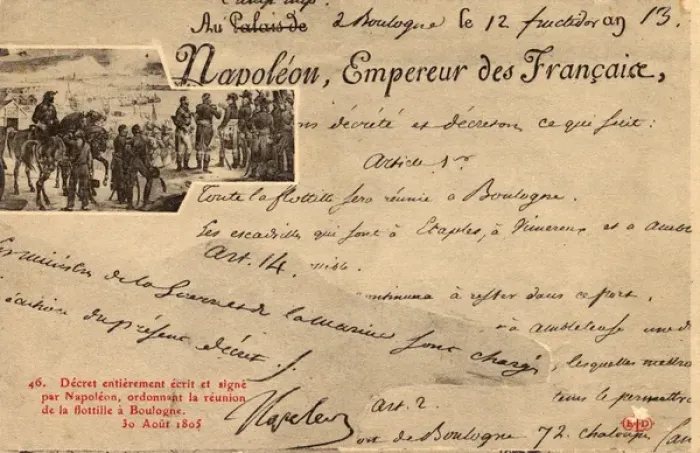 Camp imp.
Au Palais de à Boulogne le 12 fructidor an 13.
Napoléon, Empereur des Français,
ons décrété et décretons ce qui suit :
Article 1er
Toute la flottille sera réunie à Boulogne.
Les escadrilles qui sont à Etaples, à Vimereux et à Amble
Art. 14.
Les ministres de la Guerre et de la marine sont chargés
du présent décret.
continuera à rester dans ce port,
à Ambleteuse une d
, lesquelles mettro
tems le permettra
Art. 2.
ort de Boulogne 72 chaloupes Can
Napoleon
46. Décret entièrement écrit et signé
par Napoléon, ordonnant la réunion
de la flottille à Boulogne.
30 Août 1805
ELD